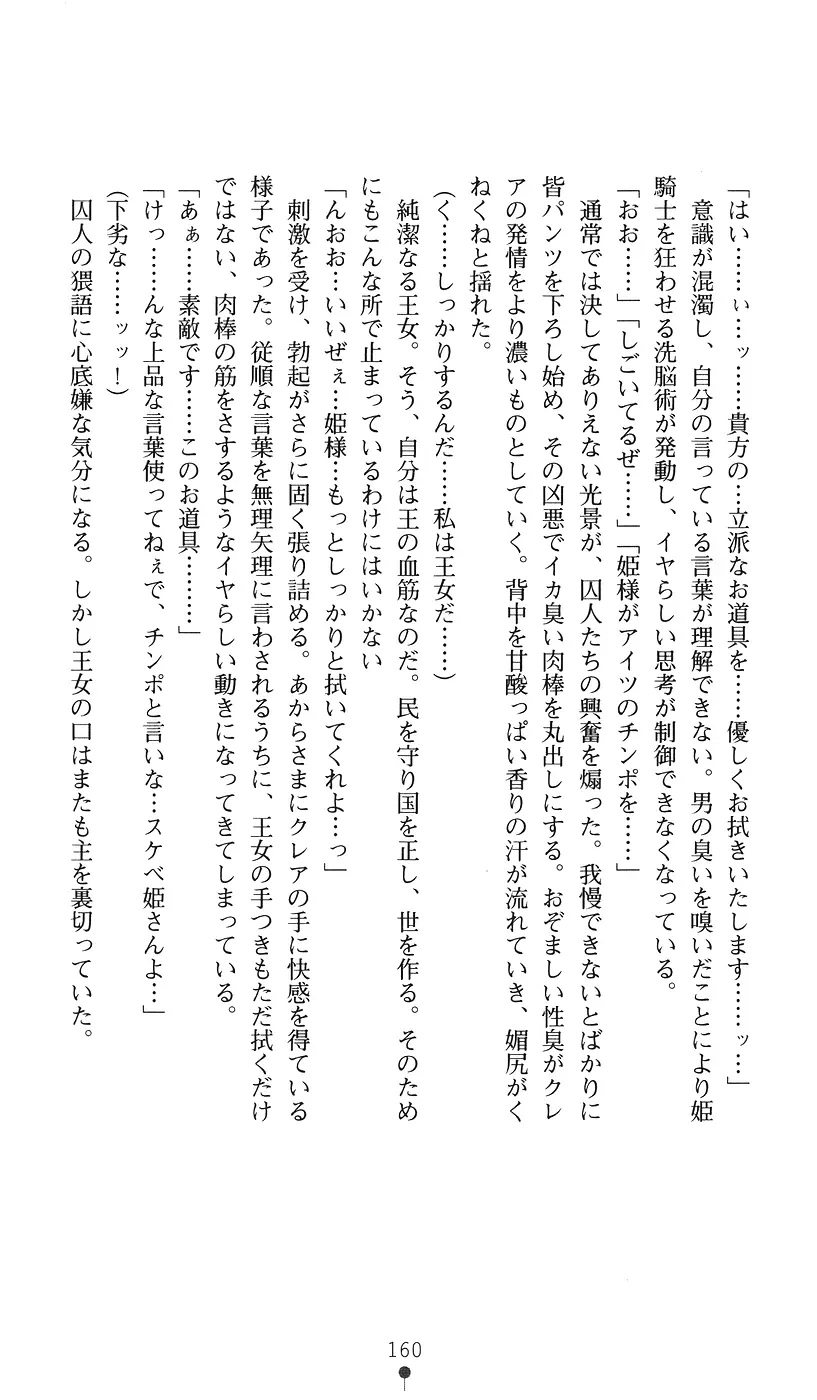 「はい……ぃ…ッ……貴方の…立派なお道具を……優しくお拭きいたします……ッ…」
　意識が混濁し、自分の言っている言葉が理解できない。男の臭いを嗅いだことにより姫
騎士を狂わせる洗脳術が発動し、イヤらしい思考が制御できなくなっている。
「おお……」「しごいてるぜ……」「姫様がアイツのチンポを……」
　通常では決してありえない光景が、囚人たちの興奮を煽った。我慢できないとばかりに
皆パンツを下ろし始め、その凶悪でイカ臭い肉棒を丸出しにする。おぞましい性臭がクレ
アの発情をより濃いものとしていく。背中を甘酸っぱい香りの汗が流れていき、媚尻がく
ねくねと揺れた。
(く……しっかりするんだ……私は王女だ……)
　純潔なる王女。そう、自分は王の血筋なのだ。民を守り国を正し、世を作る。そのため
にもこんな所で止まっているわけにはいかない
「んおお…いいぜぇ…姫様…もっとしっかりと拭いてくれよ…っ」
　刺激を受け、勃起がさらに固く張り詰める。あからさまにクレアの手に快感を得ている
様子であった。従順な言葉を無理矢理に言わされるうちに、王女の手つきもただ拭くだけ
ではない、肉棒の筋をさするようなイヤらしい動きになってきてしまっている。
「あぁ……素敵です……このお道具………」
「けっ……んな上品な言葉使ってねぇで、チンポと言いな…スケベ姫さんよ…」
(下劣な……ッッ！)
　囚人の猥語に心底嫌な気分になる。しかし王女の口はまたも主を裏切っていた。
160